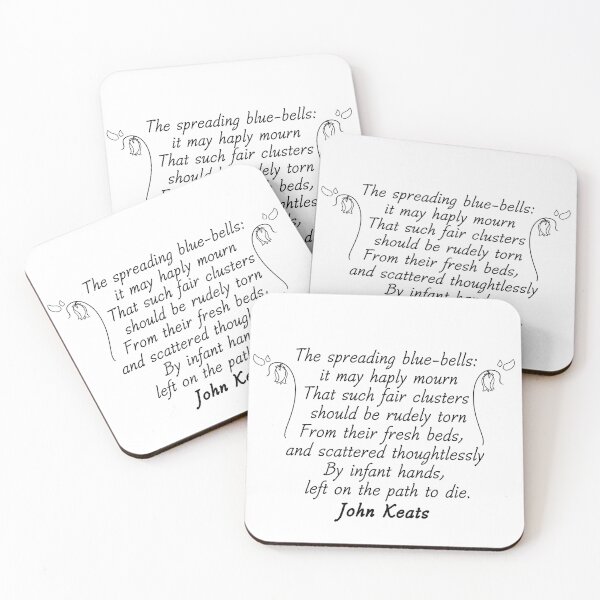 The spreading blue-bells:
it may haply mourn
That such fair clusters
should be rudely torn
The spreading blue-bells:
it may haply mourn
That such fair clusters
should be rudely torn
From their fresh beds,
and scattered thoughtlessly
By infant
The spreading blue-bells:
it may haply mourn
That such fair clusters
should be rudely torn
From their fresh beds,
and scattered
By infant
left on the path
John
The spreading blue-bells:
it may haply mourn
That such fair clusters
should be rudely torn
From their fresh beds,
and scattered thoughtlessly
By infant hands,
left on the path to die.
John Keats